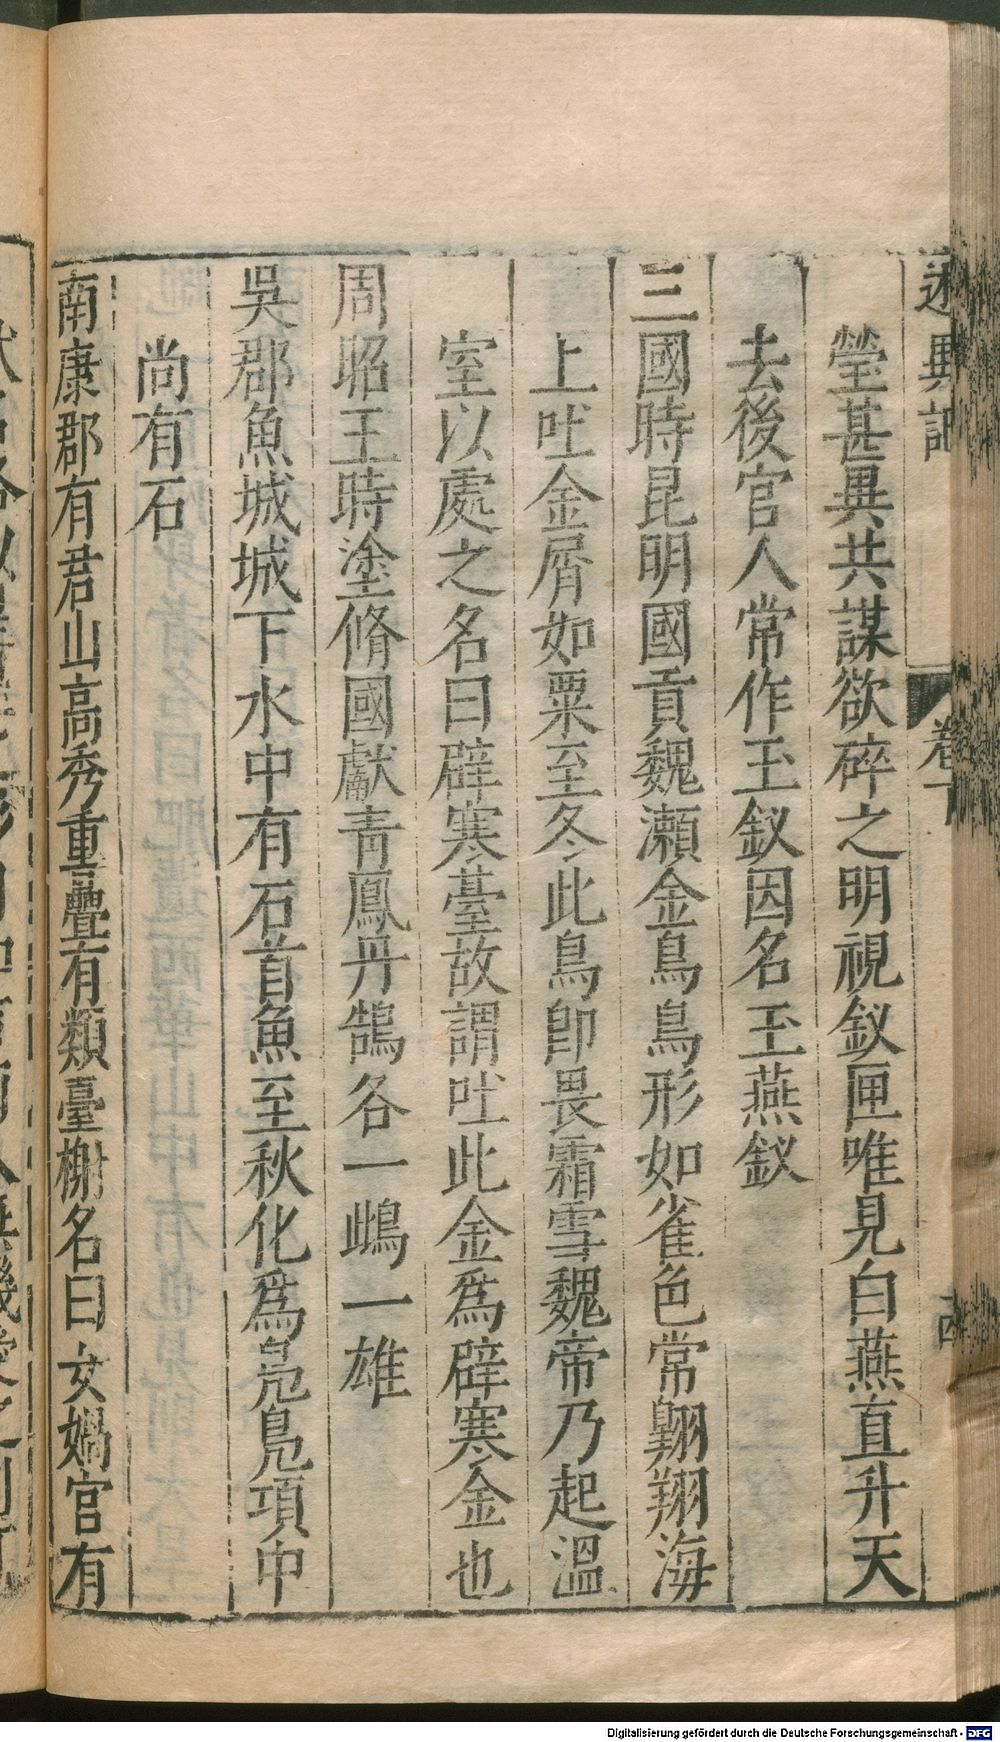 述異記 卷下
瑩甚異共謀欲碎之明視釵匣唯見白燕直升天
去後官人常作玉釵因名玉燕釵
三國時昆明國貢魏瀬金鳥鳥形如雀色常翺翔海
上吐金屑如粟至冬此鳥卽畏霜雪魏帝乃起溫
室以處之名曰辟寒臺故謂吐此金爲辟寒金也
周昭王時塗脩國獻青鳳丹鵠各一雌一雄
吳郡魚城城下水中有石首魚至秋化爲鳧鳧項中
尚有石
南康郡有君山高秀重疊有類臺榭名曰女媧官有
Digitalisierung gefördert durch die Deutsche Forschungsgemeinschaft - DFG